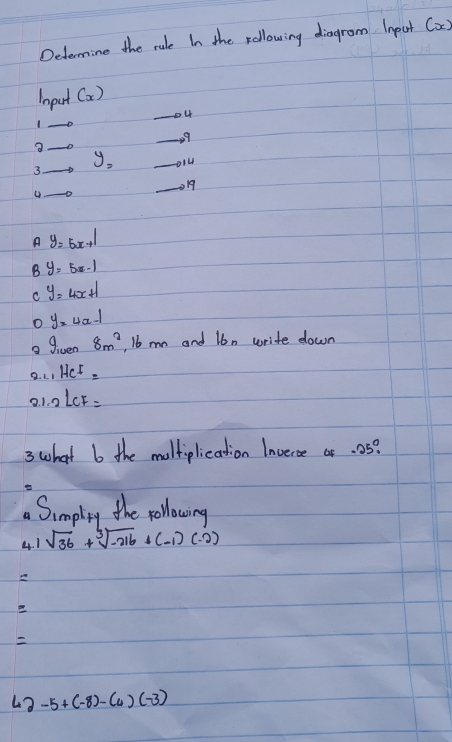 Determine the rule in the following diagram Input (x)
Input (x)
1 → → 4
2 → → 9
3 → y = → 14
4 → → 19
A y = 5x+1
B y = 5x-1
C y = 4x+1
D y = 4x-1
2 Given 8m², 16 mn and 16n write down
2.1.1 HCF =
2.1.2 LCF =
3 what is the multiplication Inverse of -25?
=
4 Simplify the following
4.1 √36 + ∛-216 + (-1) (-2)
=
=
=
4.2 -5 + (-8) - (4) (-3)